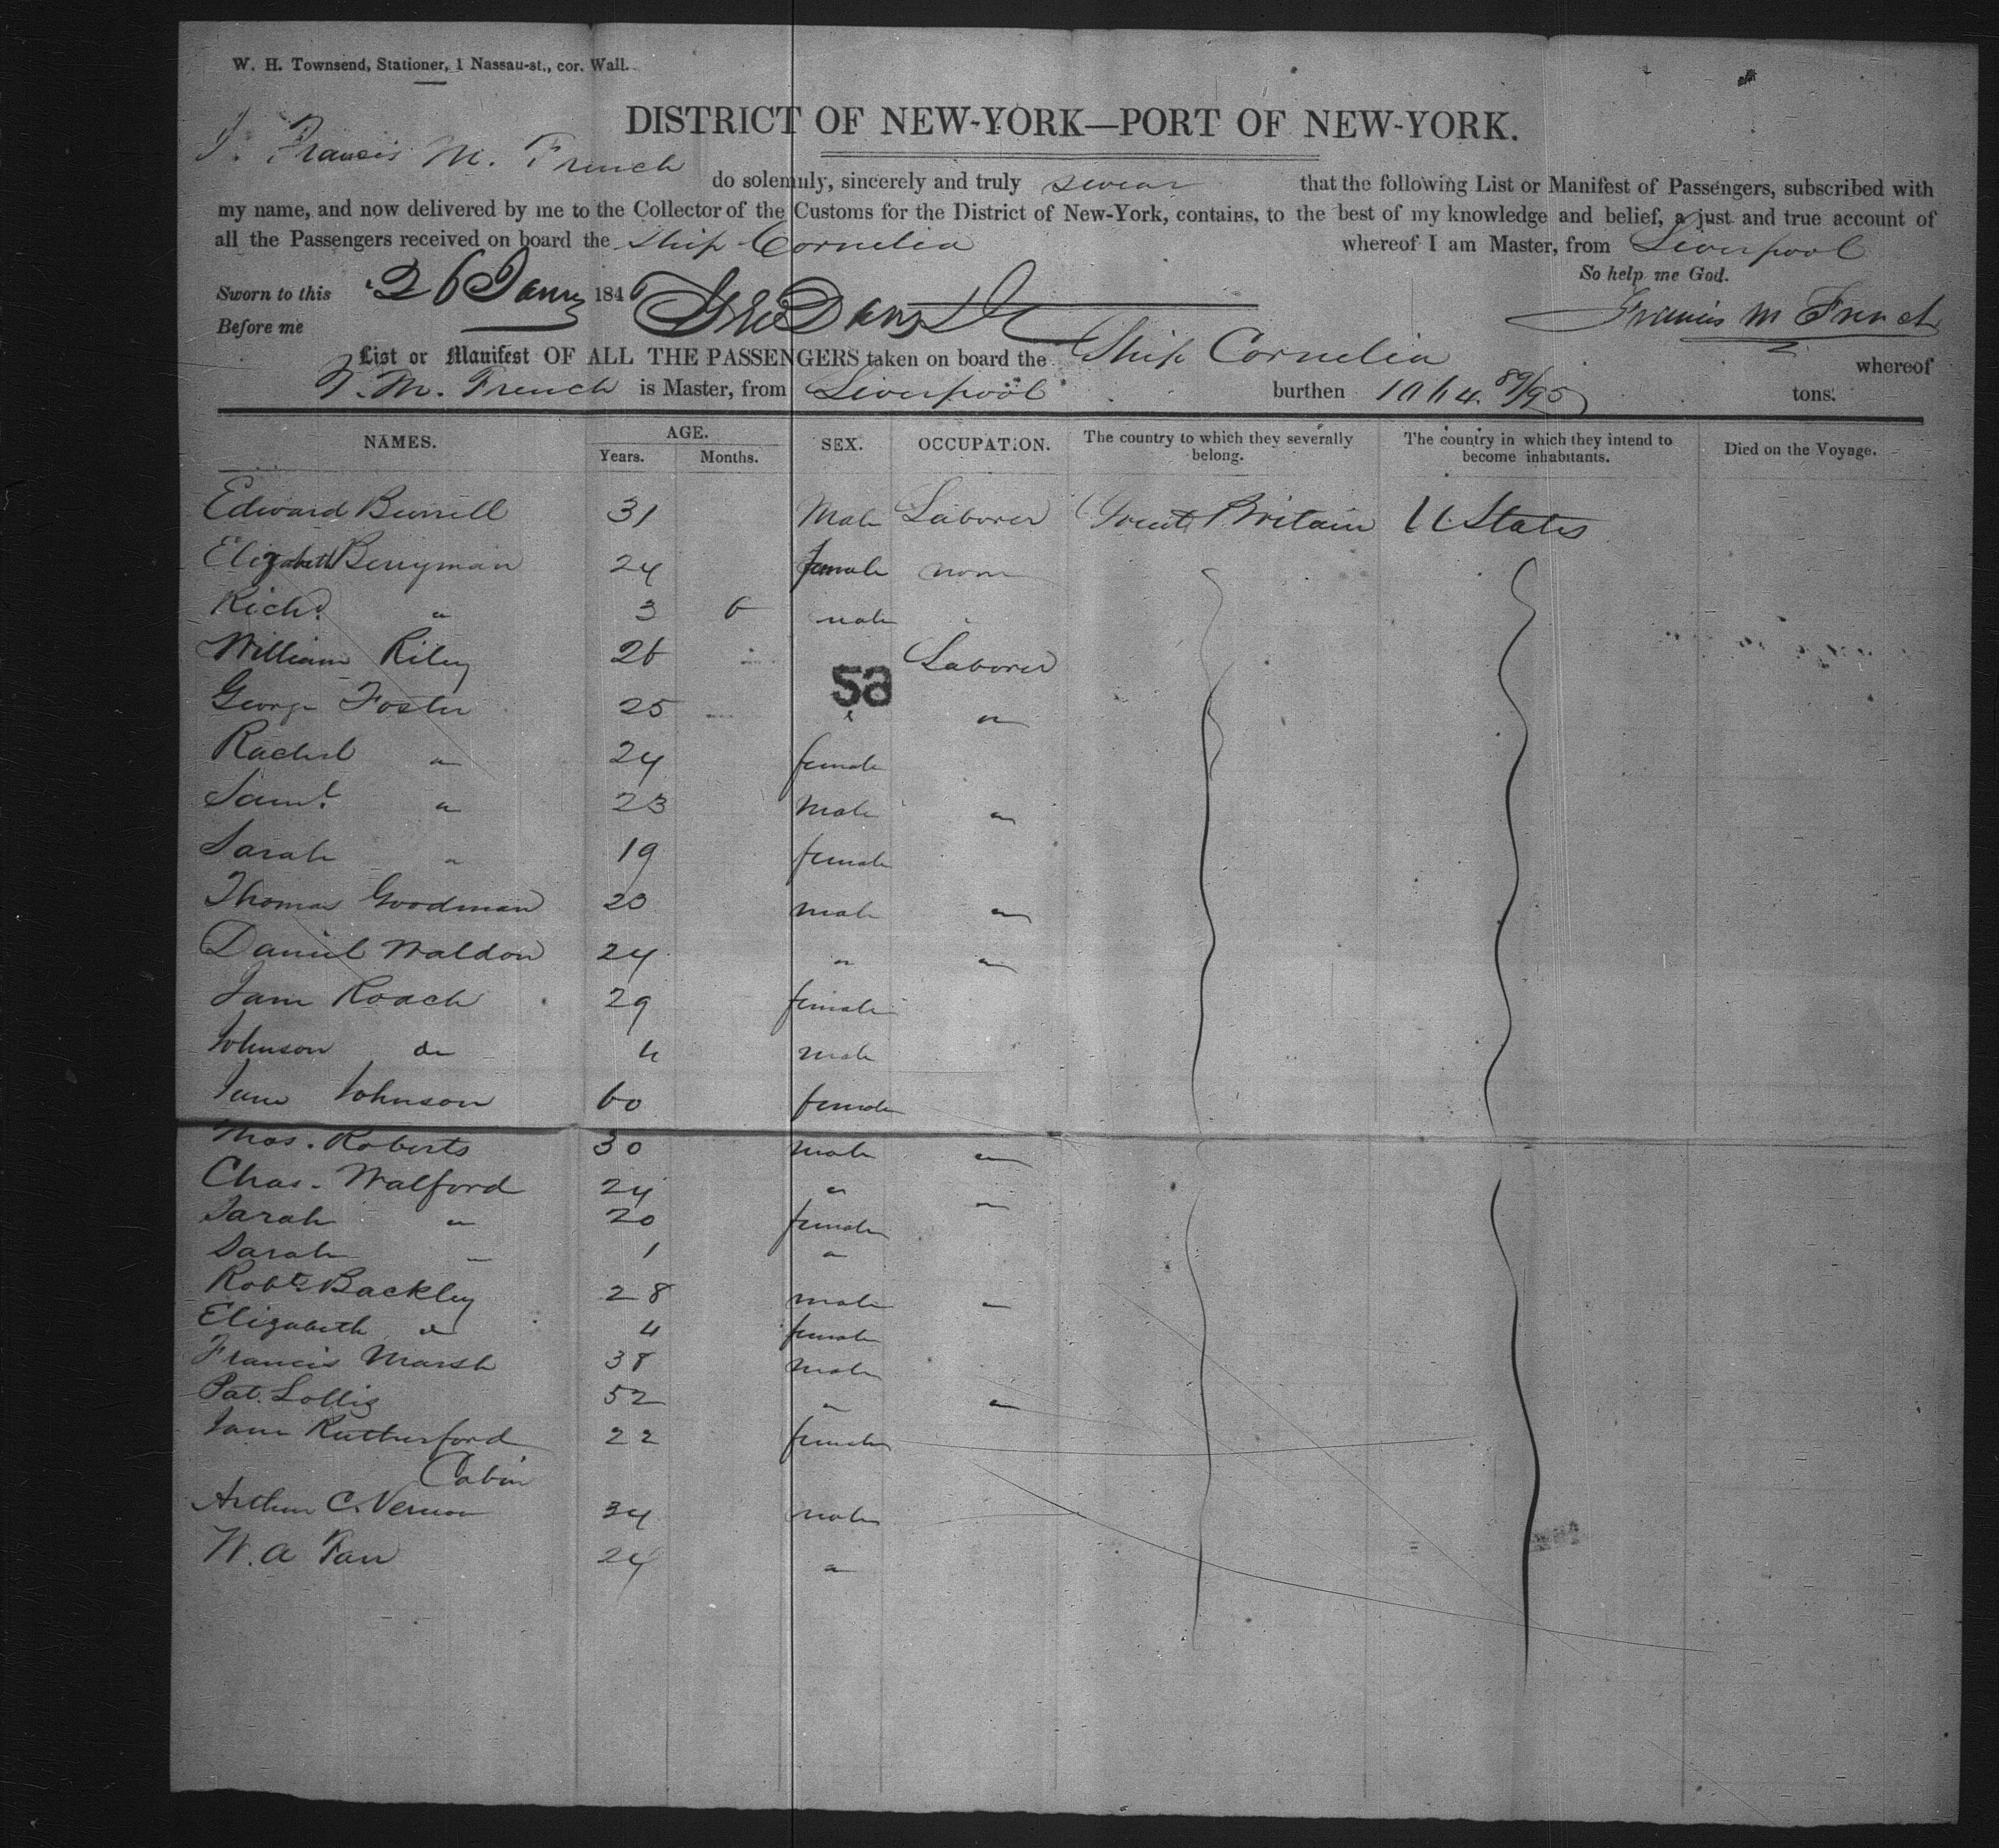 W. H. Townsend, Stationer, 1 Nassau-st., cor. Wall.
DISTRICT OF NEW-YORK—PORT OF NEW-YORK.
I, Francis M. French do solemnly, sincerely and truly swear that the following List or Manifest of Passengers, subscribed with
my name, and now delivered by me to the Collector of the Customs for the District of New-York, contains, to the best of my knowledge and belief, a just and true account of
all the Passengers received on board the Ship Cornelia whereof I am Master, from Liverpool
So help me God.
Sworn to this 26 Jany 1846
Before me Francis M French
List or Manifest OF ALL THE PASSENGERS taken on board the Ship Cornelia whereof
F. M. French is Master, from Liverpool burthen tons.
NAMES. AGE. SEX. OCCUPATION. The country to which they severally belong. The country in which they intend to become inhabitants. Died on the Voyage.
Years. Months.
Edward Burrell 31 Male Laborer Great Britain U States
Elizabeth Berryman 24 female none
Richd. " 3 6 male
William Riley 26 Laborer
59
George Foster 25 "
Rachel " 24 female
Saml. " 23 Male "
Sarah " 19 female
Thomas Goodman 23 male "
Daniel Waldon 24 " "
Jane Roach 29 female
Johnson do 4 male
Jane Johnson 60 female
Thos. Roberts 30 male "
Chas. Walford 24 " "
Sarah " 20 female
Sarah " 1 "
Robt. Backley 28 male "
Elizabeth do 4 female
Francis Marsh 38 male
Pat. 52 " "
Jane Rutherford 22 female
Cabin
Arthur C. Vernon 34 male
W. A 24 "